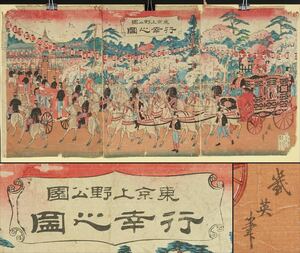 園公野上京東
圖之幸行
園公野上京東
圖之幸行
英筆